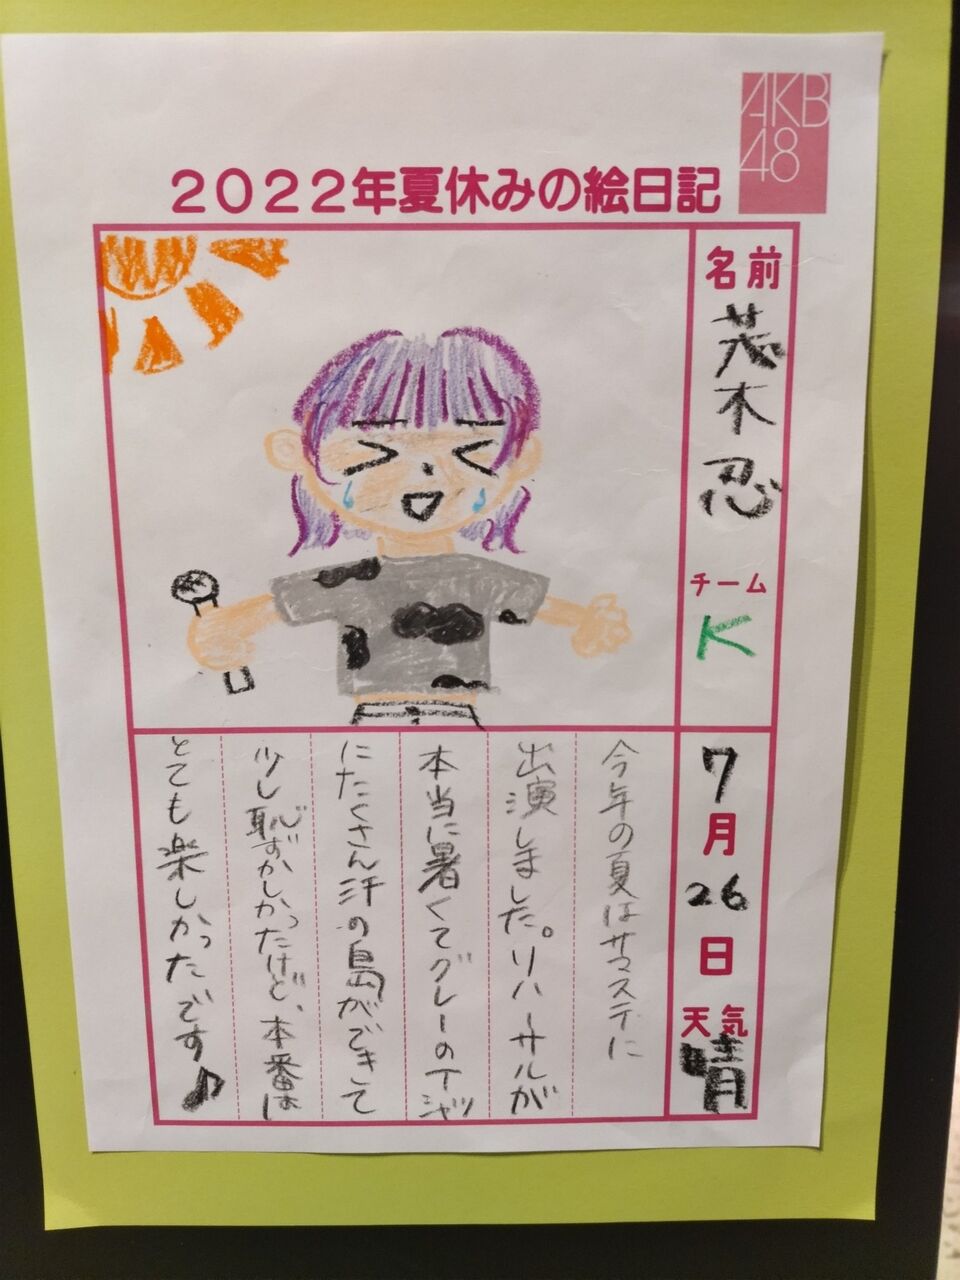 AKB
48
2022年夏休みの絵日記
名前
茂木忍
チーム
K
7月26日
天気
晴
今年の夏はサマステに
出演しました。リハーサルが
本当に暑くてグレーのTシャツ
にたくさん汗の島ができて
少し恥ずかしかったけど、本番は
とても楽しかったです♪